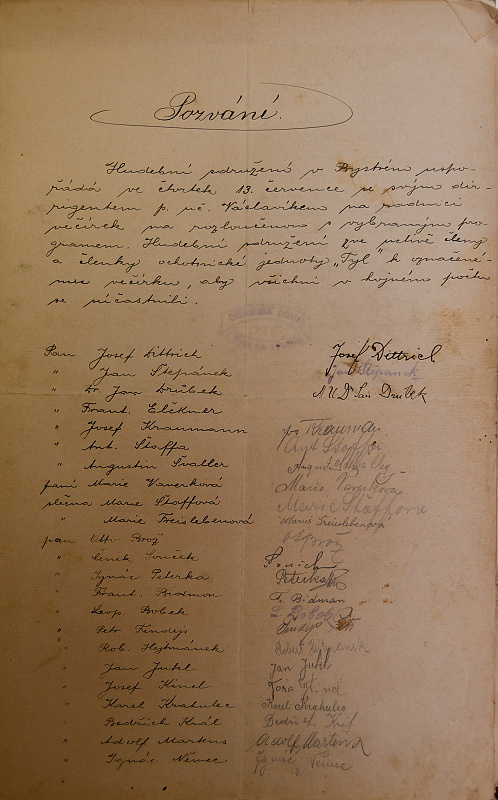 Pozvání.
Hudební sdružení v Bystrém uspo-
řádá ve čtvrtek 13. července se svým diri-
gentem p. uč. Václavíkem na radnici
večírek na rozloučenou s vybraným pro-
gramem. Hudební sdružení zve uctivě členy
a členky ochotnické jednoty "Tyl" k označené-
mu večírku, aby všichni v hojném počtu
se súčastnili.
Pan Josef Dittrich Josef Dittrich
" Jan Štěpánek Jan Štěpánek
" Dr. Jan Drúbek MUDr Jan Drubek
" Frant. Elickner
" Josef Kraumann Jos Krauman
" Ant. Štoffa Ant Štoffa
" Augustin Švaller
paní Marie Vaverková Marie Vaverková
slečna Marie Štoffová Marie Štoffová
" Marie Freislebenová Marie Freislebenová
pan Otto Brož Ot Brož
" Čeněk Souček
" Ignác Peterka Peterka
" Frant. Bidmon Fr Bidman
" Leop. Bobek L Bobek
" Petr Findejs Findejs
" Rob. Hejtmánek Robert Hejtmánek
" Jan Jukl Jan Jukl
" Josef Kinel
" Karel Krahulec Karel Krahulec
Bedřich Král Bedřich Král
" Adolf Martens Adolf Martens
" Ignác Němec Ignác Němec